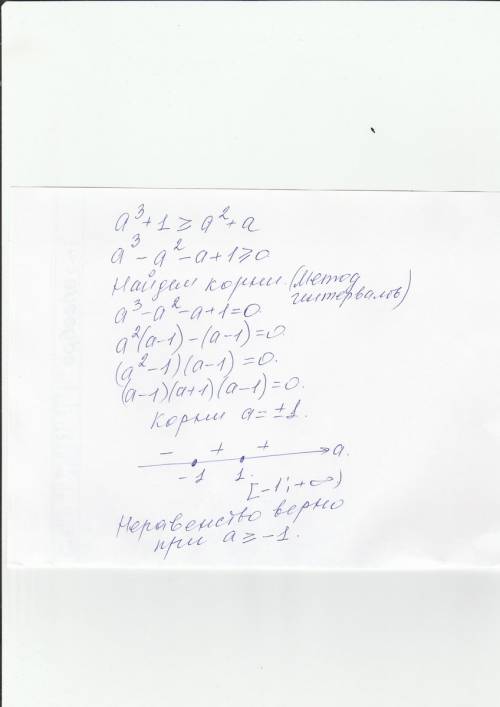 a³+1 ≥ a²+a
a³-a²-a+1≥0
Найдем корни. (Метод
интервалов)
a³-a²-a+1=0
a²(a-1)-(a-1)=0
(a²-1)(a-1)=0.
(a-1)(a+1)(a-1)=0.
Корни a=±1.
- + + a.
-1 1.
[-1;+∞)
Неравенство верно
при a≥-1.